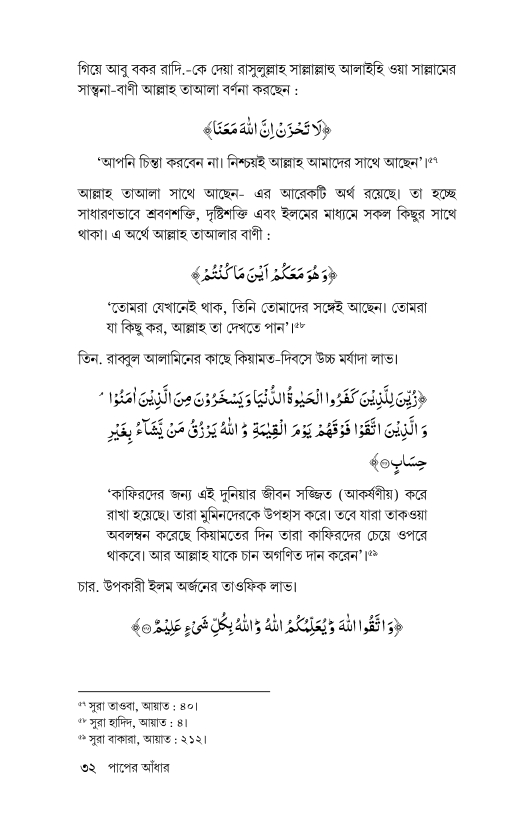 গিয়ে আবু বকর রাদি.-কে দেয়া রাসুলুল্লাহ সাল্লাল্লাহু আলাইহি ওয়া সাল্লামের
সান্ত্বনা-বাণী আল্লাহ তাআলা বর্ণনা করছেন :
﴿لَا تَحْزَنْ اِنَّ اللّٰهَ مَعَنَا﴾
‘আপনি চিন্তা করবেন না। নিশ্চয়ই আল্লাহ আমাদের সাথে আছেন’।৫৭
আল্লাহ তাআলা সাথে আছেন- এর আরেকটি অর্থ রয়েছে। তা হচ্ছে
সাধারণভাবে শ্রবণশক্তি, দৃষ্টিশক্তি এবং ইলমের মাধ্যমে সকল কিছুর সাথে
থাকা। এ অর্থে আল্লাহ তাআলার বাণী :
﴿وَ هُوَ مَعَكُمْ اَيْنَ مَا كُنْتُمْ﴾
‘তোমরা যেখানেই থাক, তিনি তোমাদের সঙ্গেই আছেন। তোমরা
যা কিছু কর, আল্লাহ তা দেখতে পান’।৫৮
তিন. রাব্বুল আলামিনের কাছে কিয়ামত-দিবসে উচ্চ মর্যাদা লাভ।
﴿زُيِّنَ لِلَّذِيْنَ كَفَرُوا الْحَيٰوةُ الدُّنْيَا وَ يَسْخَرُوْنَ مِنَ الَّذِيْنَ اٰمَنُوْا ۘ
وَ الَّذِيْنَ اتَّقَوْا فَوْقَهُمْ يَوْمَ الْقِيٰمَةِ ؕ وَ اللّٰهُ يَرْزُقُ مَنْ يَّشَآءُ بِغَيْرِ
حِسَابٍ ﴿۲۱۲﴾﴾
‘কাফিরদের জন্য এই দুনিয়ার জীবন সজ্জিত (আকর্ষণীয়) করে
রাখা হয়েছে। তারা মুমিনদেরকে উপহাস করে। তবে যারা তাকওয়া
অবলম্বন করেছে কিয়ামতের দিন তারা কাফিরদের চেয়ে ওপরে
থাকবে। আর আল্লাহ যাকে চান অগণিত দান করেন’।৫৯
চার. উপকারী ইলম অর্জনের তাওফিক লাভ।
﴿وَ اتَّقُوا اللّٰهَ ؕ وَ يُعَلِّمُكُمُ اللّٰهُ ؕ وَ اللّٰهُ بِكُلِّ شَيْءٍ عَلِيْمٌ ﴿۲۸۲﴾﴾
৫৭ সুরা তাওবা, আয়াত : ৪০।
৫৮ সুরা হাদিদ, আয়াত : ৪।
৫৯ সুরা বাকারা, আয়াত : ২১২।
৩২ পাপের আঁধার